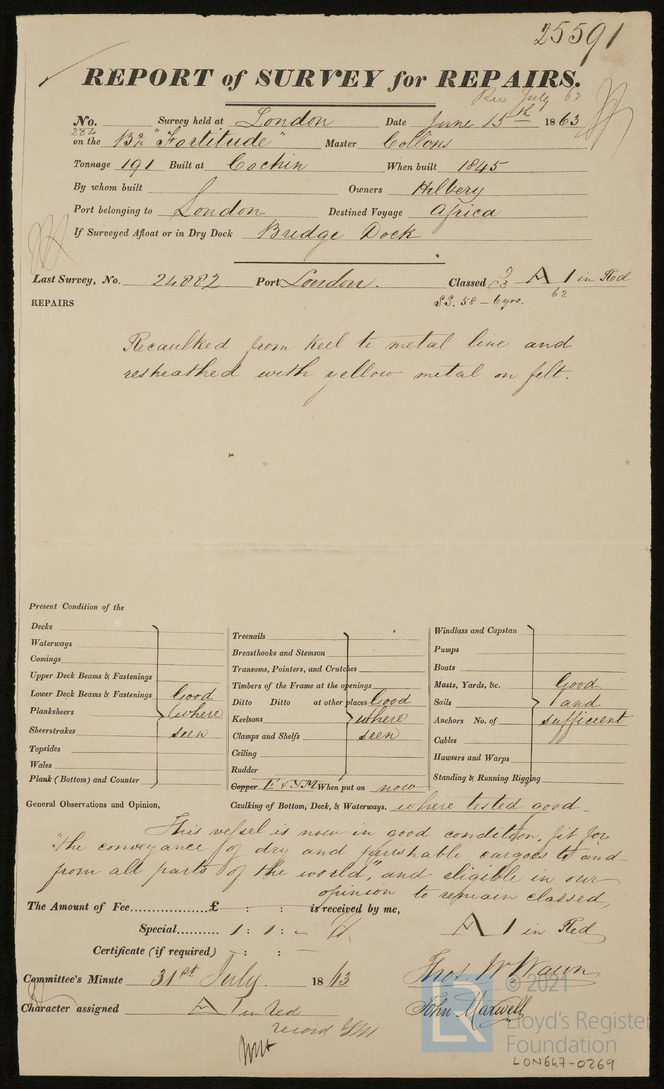 25591
REPORT of SURVEY for REPAIRS.
Rec July 63
No. Survey held at London Date June 15th 1863
on the Bq "Fortitude" Master Collons
Tonnage 191 Built at Cochin When built 1845
By whom built Owners Hilbery
Port belonging to London Destined Voyage Africa
If Surveyed Afloat or in Dry Dock Bridge Dock
Last Survey, No. 24882 Port London. Classed A 1 in Red
S.S. 58 - 6 yrs. 62
REPAIRS
Recaulked from keel to metal line and
resheathed with yellow metal on felt.
Present Condition of the
Decks
Waterways
Comings
Upper Deck Beams & Fastenings
Lower Deck Beams & Fastenings
Planksheers
Sheerstrakes
Topsides
Wales
Plank (Bottom) and Counter
Good
where
seen
Treenails
Breasthooks and Stemson
Transoms, Pointers, and Crutches
Timbers of the Frame at the openings
Ditto Ditto at other places
Keelsons
Clamps and Shelfs
Ceiling
Rudder
Good
where
seen
Copper F & YM When put on now
Windlass and Capstan
Pumps
Boats
Masts, Yards, &c.
Sails
Anchors No. of
Cables
Hawsers and Warps
Standing & Running Rigging
Good
and
sufficient
General Observations and Opinion, Caulking of Bottom, Deck, & Waterways, where tested good.
This vessel is now in good condition, fit for
"the conveyance of dry and perishable cargoes to and
from all parts of the world," and eligible in our
opinion to remain classed
The Amount of Fee..................£ : : is received by me,
A 1 in Red
Special.......... 1 : 1 : -
Certificate (if required) - : :
Committee's Minute 31st July. 1863
Thos W Wawn
John Maxwell
Character assigned A 1 in red
record
© 2021
Lloyd's Register
Foundation
LR
LON647-0269